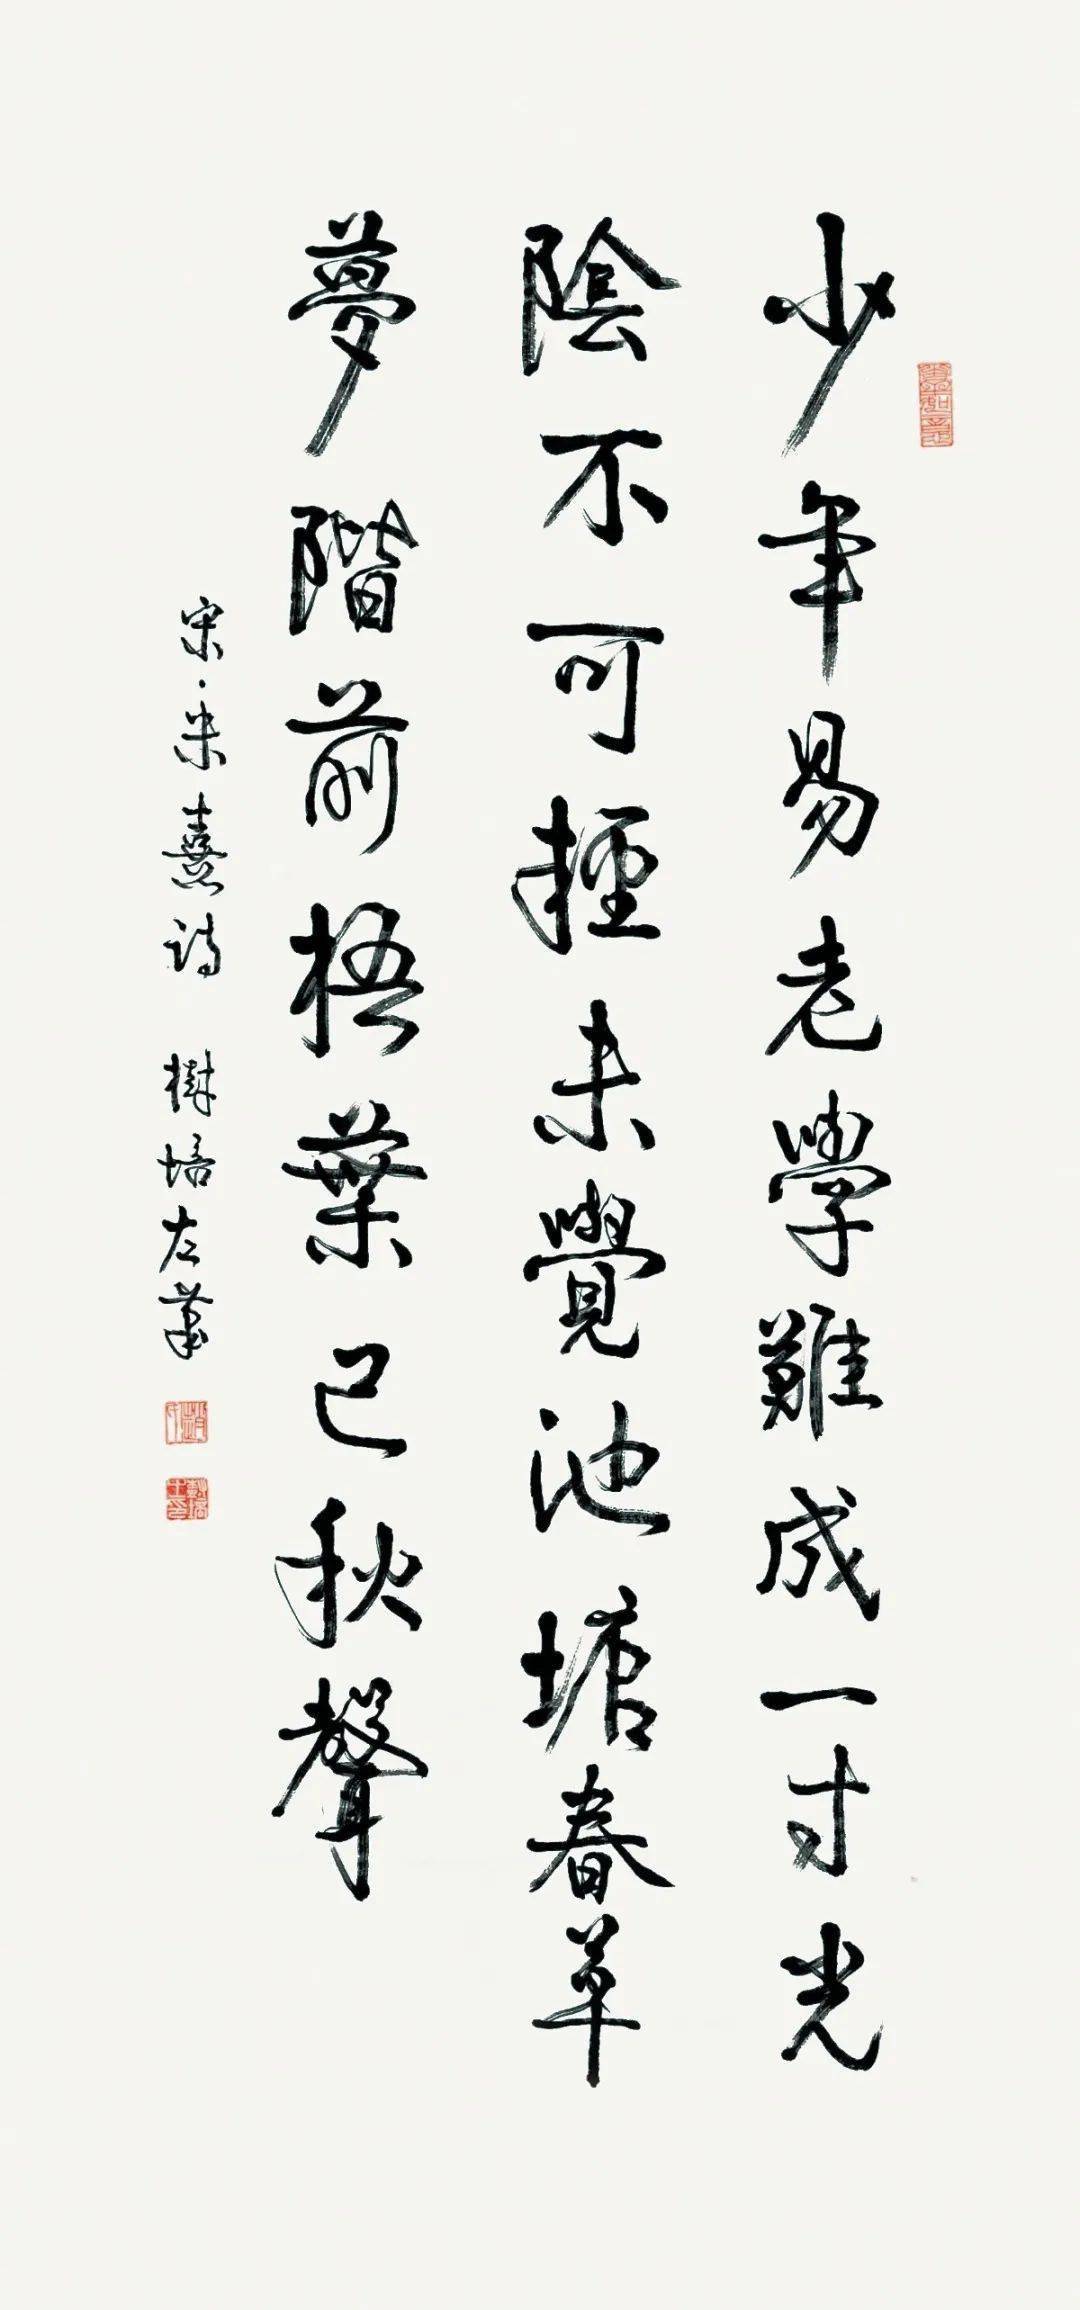 少年易老學難成一寸光
陰不可輕未覺池塘春草
夢階前梧葉已秋聲
宋·朱熹詩 樹培左筆